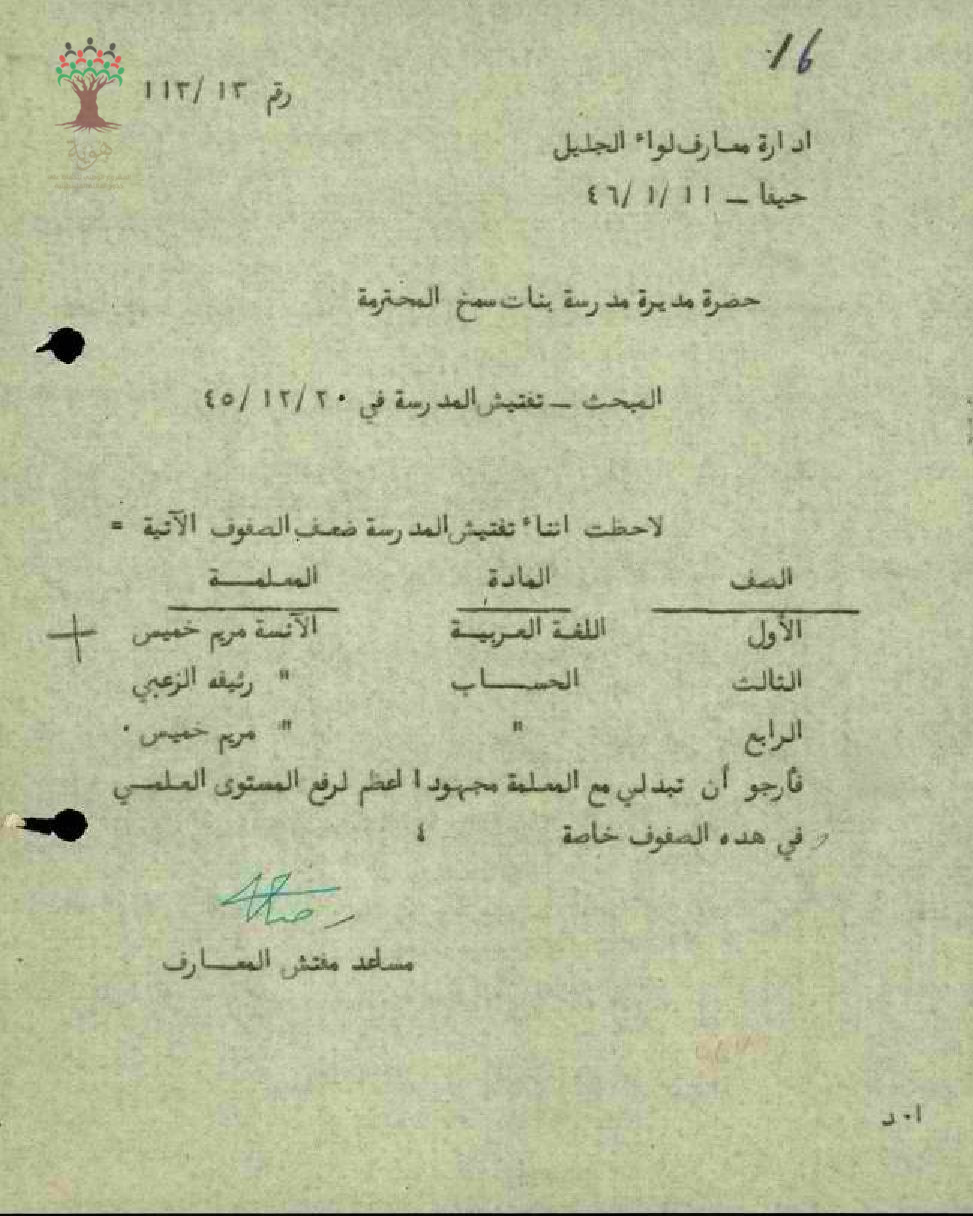 16
رقم ١٣/ ١١٣
هوية
ادارة معارف لواء الجليل
حيفا ــ ١١ /١ /٤٦
حضرة مديرة مدرسة بنات سمخ المحترمة
المبحث ــ تفتيش المدرسة في ٢٠ /١٢ /٤٥
لاحظت اثناء تفتيش المدرسة ضعف الصفوف الآتية =
الصف المادة المعلمــــة
الأول اللغـة العـربيـــة الآنسة مريم خميس
الثالث الحســـاب " رئيفه الزعبي
الرابع " " مريم خميس ٠
فأرجو أن تبذلي مع المعلمة مجهودا اعظم لرفع المستوى العلمـــي
في هذه الصفوف خاصة ؛
مساعد مفتش المعــــارف
ا ٠ د